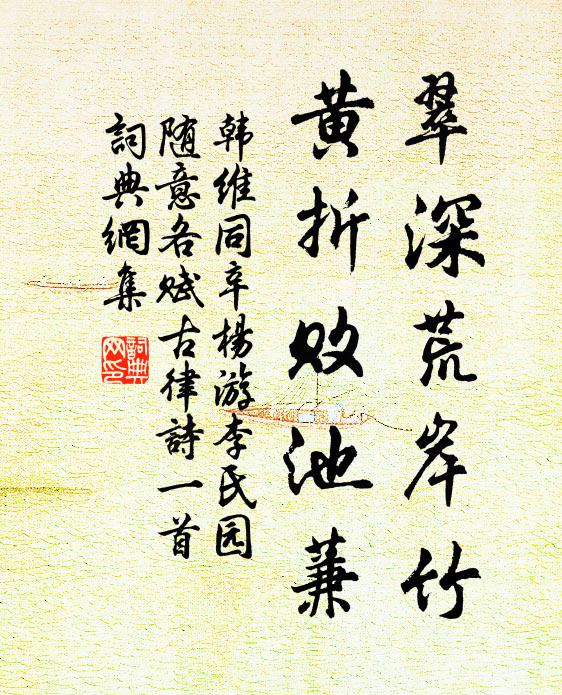 翠深荒岸竹
黄折败池蒹
韩维同辛杨游李氏园
随意各赋古律詩一首
詞典網集
詞典网印